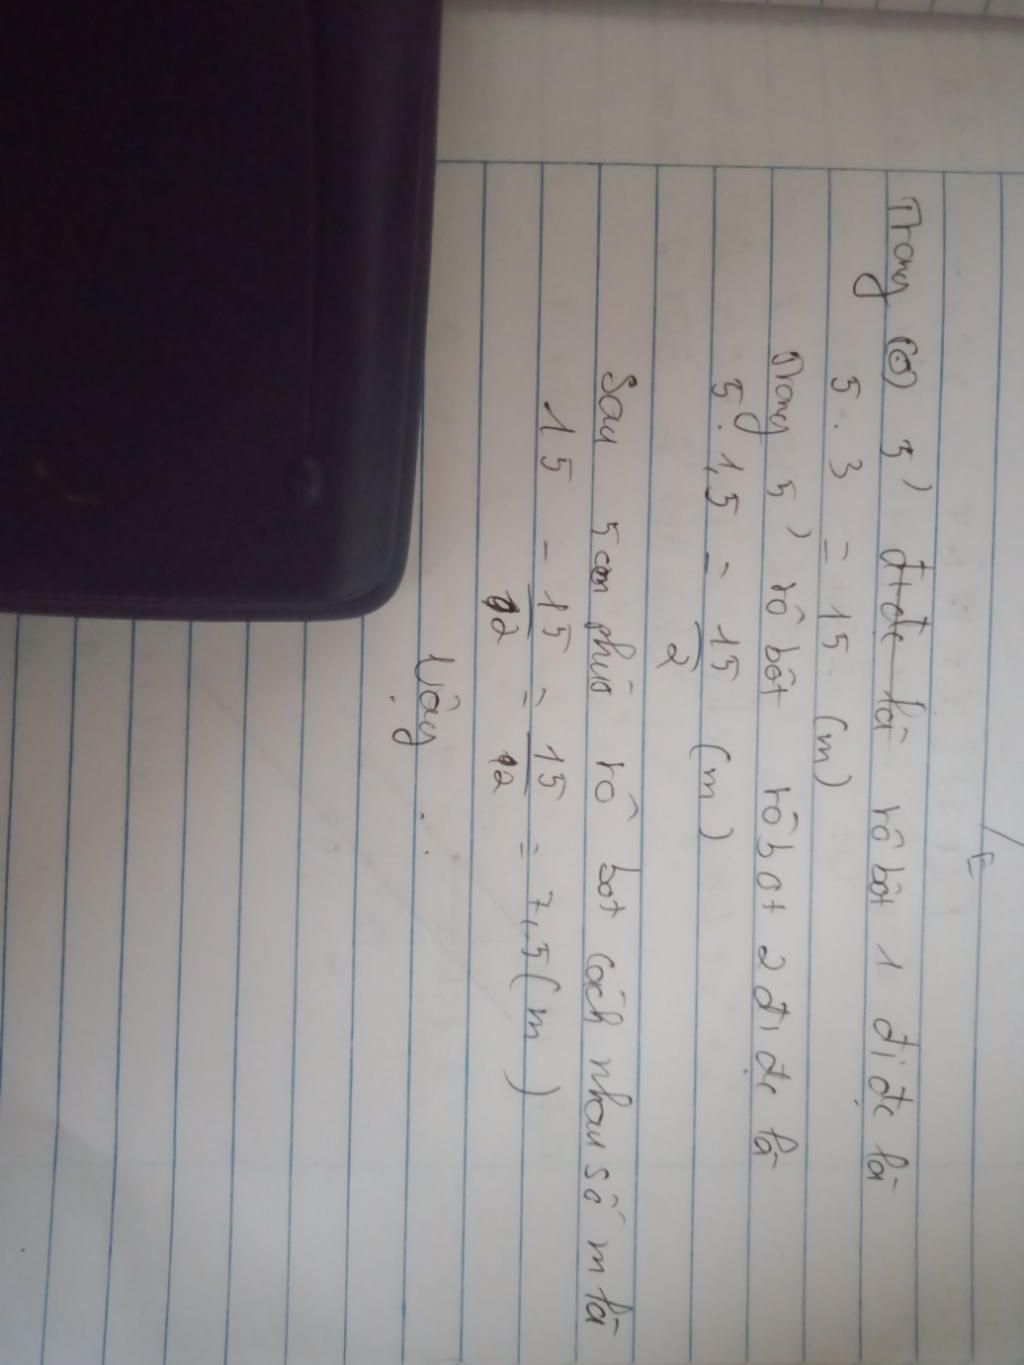 Trong 5' đi đc là rô bôt 1 đi đc là
5 . 3 = 15 (m)
Trong 5' rô bôt rôbot 2 đi đc là
5 . 1,5 = 15/2 (m)
Sau 5 phút rô bot cách nhau số m là
15 - 15/2 = 15/2 = 7,5 (m)
Vậy ...